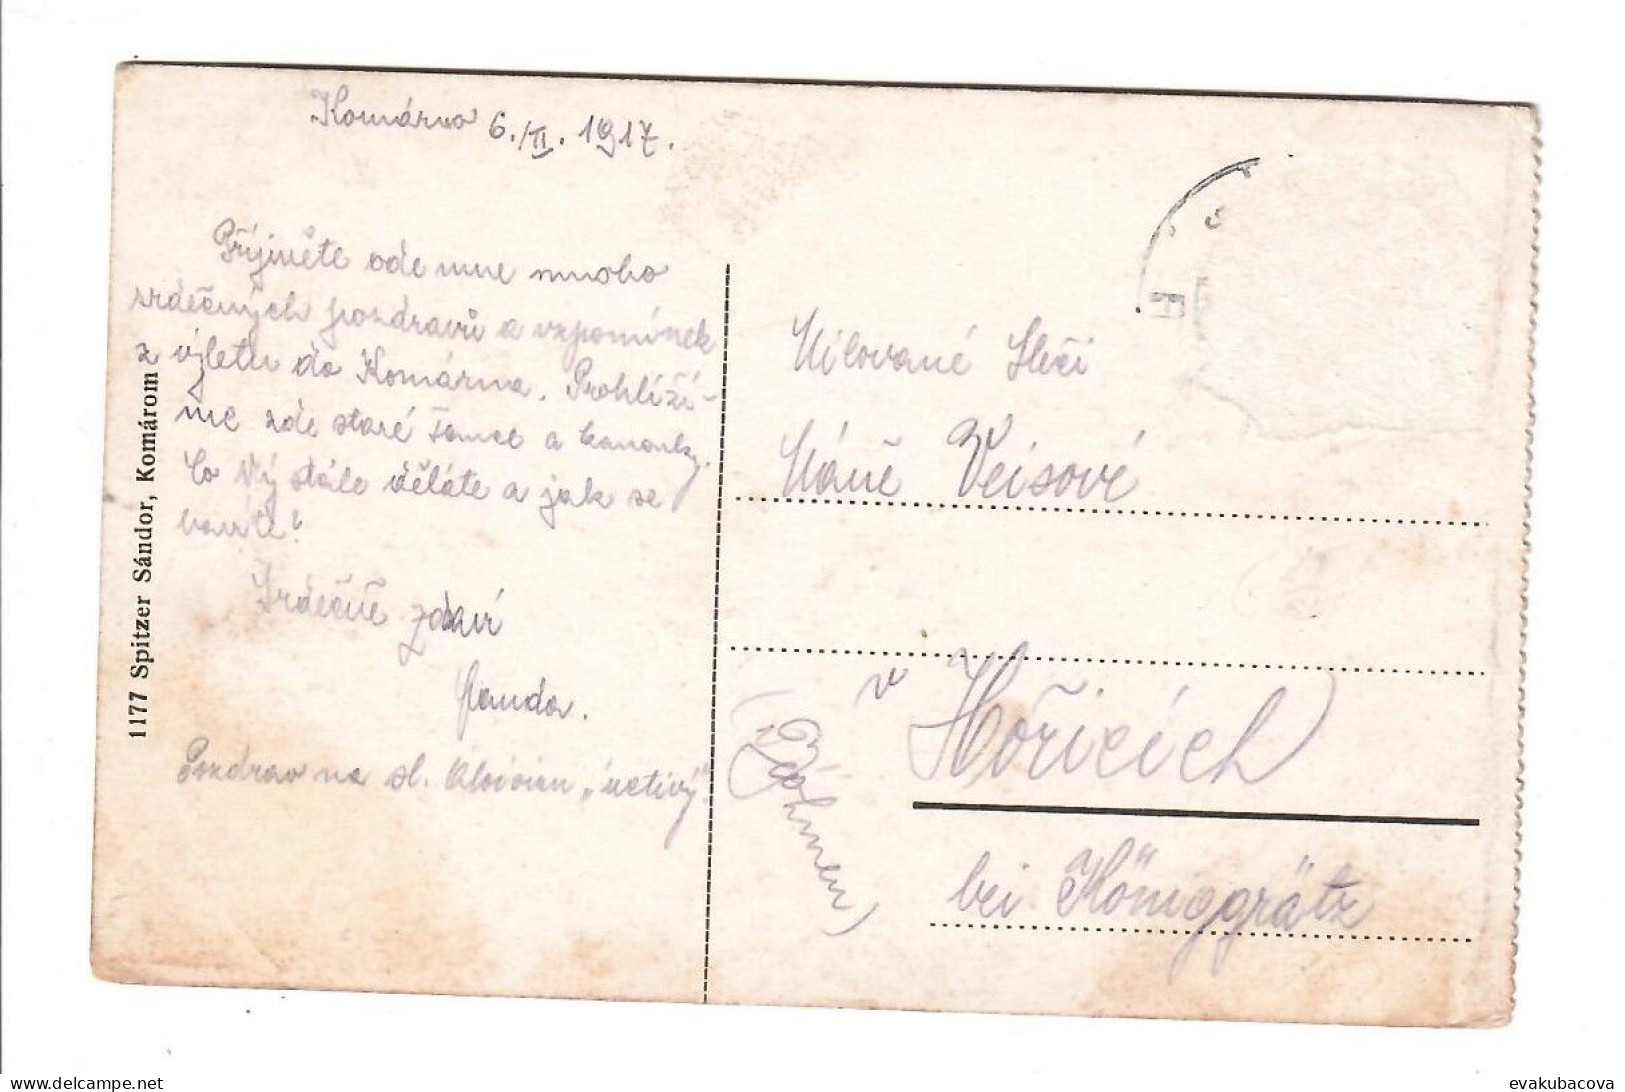 Komárno 6./II. 1917.
Přijměte ode mne mnoho
srdečných pozdravů a vzpomínek
z výletu do Komárna. Prohlíží-
me zde staré a kanonky.
Co Vy stále děláte a jak se
bavíte?
Srdečně zdraví
Panda.
Pozdrav na sl. „uctivý“.
1177 Spitzer Sándor, Komárom
Milované Slečě
Máně Veisové
v Hořicích
(Böhmen)
bei Königgrätz
evakubacova